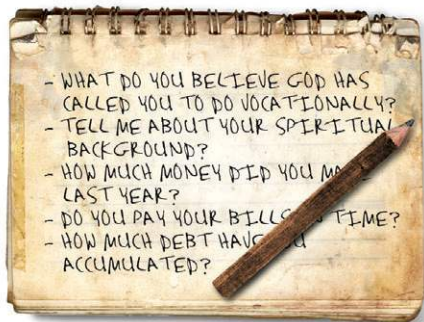 - WHAT DO YOU BELIEVE GOD HAS
CALLED YOU TO DO VOCATIONALLY?
- TELL ME ABOUT YOUR SPIRITUAL
BACKGROUND?
- HOW MUCH MONEY DID YOU
LAST YEAR?
- DO YOU PAY YOUR BILLS TIME?
- HOW MUCH DEBT HAVE
ACCUMULATED?